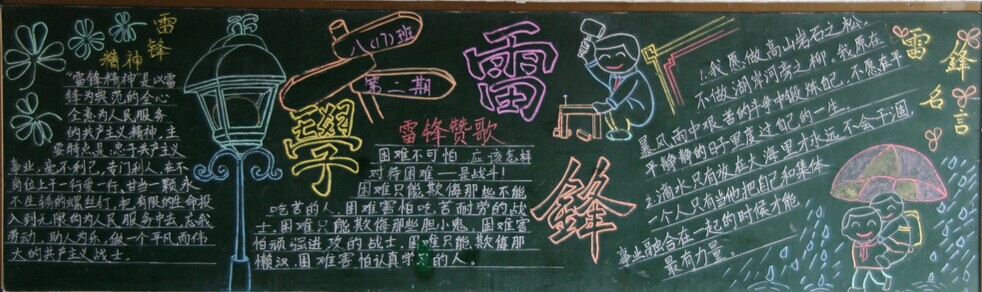 雷锋
精神
"雷锋精神"是以雷
锋为典范的全心
全意为人民服务
的共产主义精神，主
要特点是忠于共产主义
事业，毫不利己，专门利人，在不
岗位上干一行爱一行，甘当一颗永
不生锈的螺丝钉，把有限的生命投
入到无限的为人民服务中去，忘我
劳动，助人为乐，做一个平凡而伟
大的共产主义战士。
八(17)班
第二期
學
雷
锋
雷锋赞歌
困难不可怕 应该怎样
对待困难—是战斗!
困难只能欺侮那些不能
吃苦的人，困难害怕吃苦耐劳的战
士，困难只能欺侮那些胆小鬼，困难害
怕顽强进攻的战士，困难只能欺侮那
懒汉，困难害怕认真学习的人。
1.我愿做高山岩石之松，
不做湖岸河旁之柳。我愿在
暴风雨中艰苦的斗争中锻炼自己，不愿在平
平静静的日子里度过自己的一生。
2.滴水只有放在大海里才永远不会干涸，
一个人只有当他把自己和集体
事业融合在一起的时候才能
最有力量。
雷锋
名言